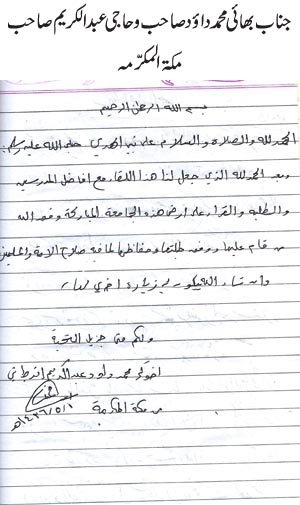 جناب بھائی محمد داؤد صاحب و حاجی عبدالکریم صاحب
مکۃ المکرّمہ
بسم الله الرحمن الرحيم
الحمد لله والصلاة والسلام على نبي الهدى صلى الله عليه وسلم.
وبعد الحمد لله الذي جعل لنا هذا اللقاء مع أفاضل المدرسين
والطلبة والقراء على أرض هذه الجامعة المباركة وفق الله
من قام عليها ووفق طلبتها وحفاظها لما فيه صلاح الأمة والمسلمين
وإن شاء الله يكون لي زيارة أخرى لها
ولكم منا جزيل التحية
أخوكم محمد داود عبد الكريم
من مكة المكرمة
١٤٢٦/٥/١هـ